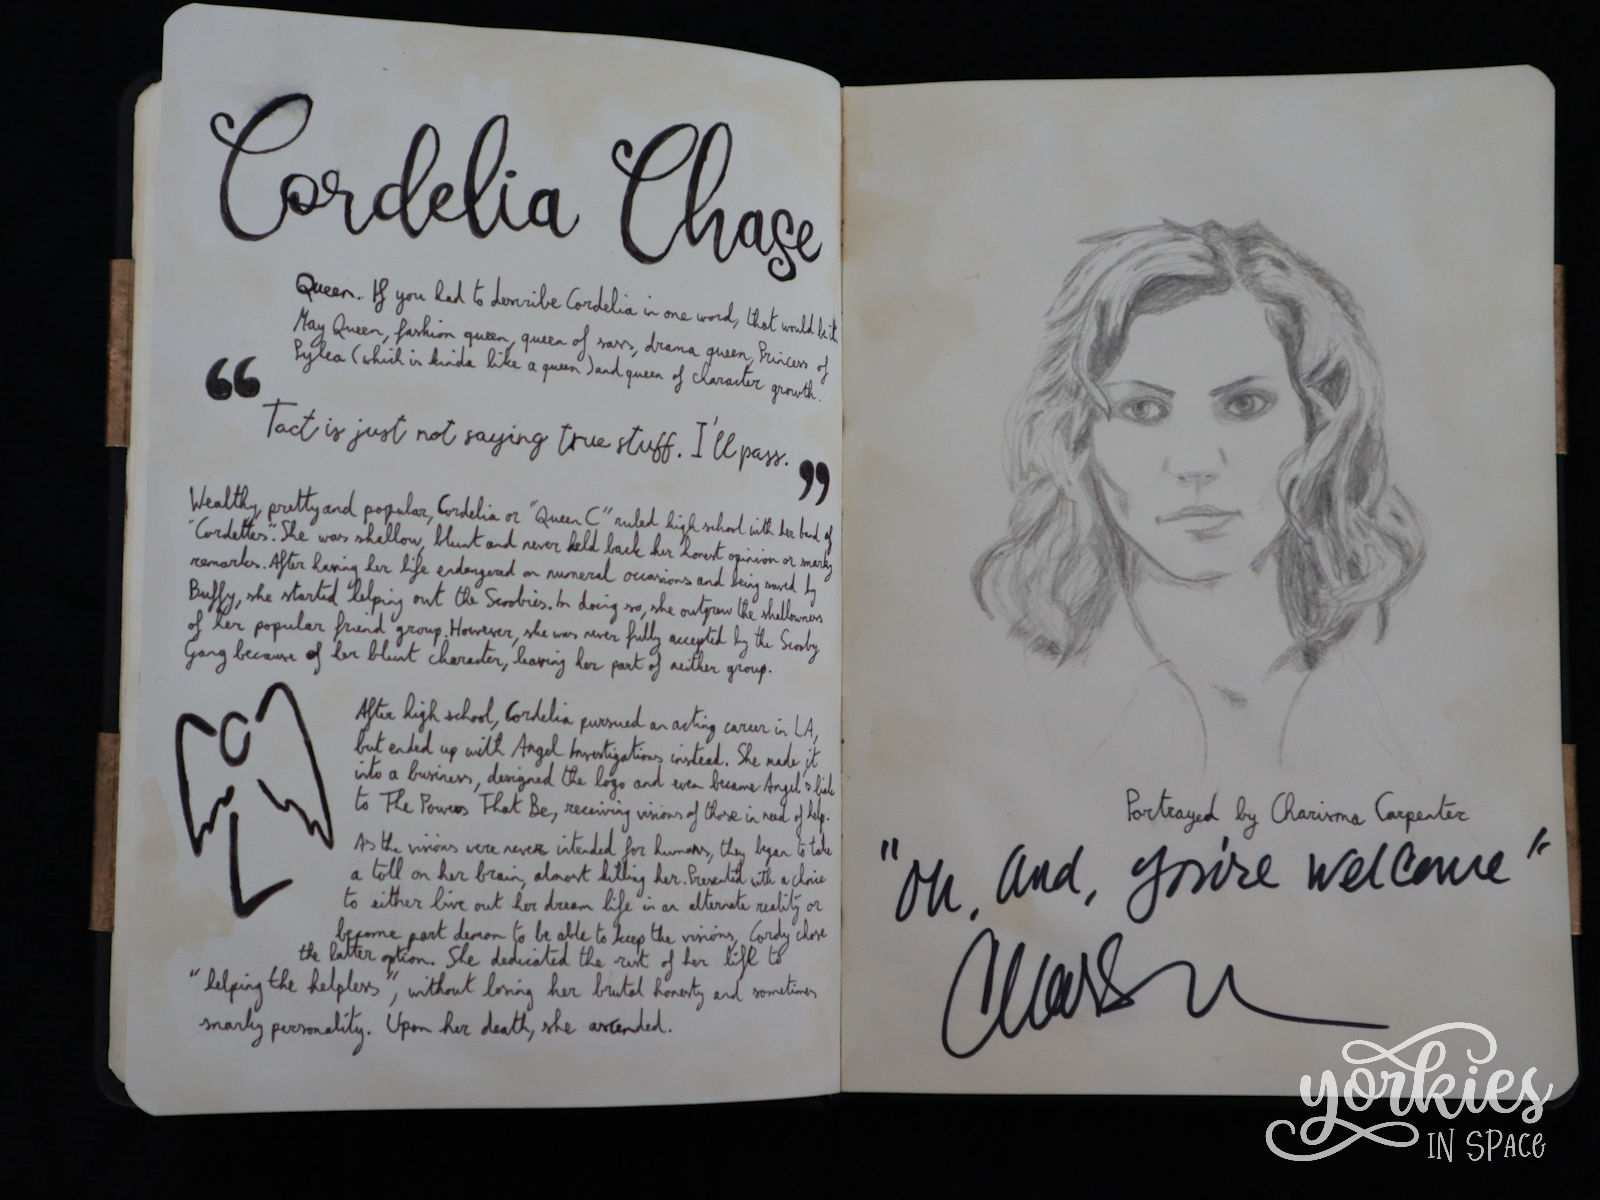 Cordelia Chase
Queen. If you had to describe Cordelia in one word, that would be it.
May Queen, fashion queen, queen of sass, drama queen, Princess of
Pylea (which is kinda like a queen) and queen of character growth.
“
Tact is just not saying true stuff. I'll pass.
”
Wealthy, pretty and popular, Cordelia or "Queen C" ruled high school with her band of
"Cordettes". She was shallow, blunt and never held back her honest opinion or snarky
remarks. After having her life endangered on numeral occasions and being saved by
Buffy, she started helping out the Scoobies. In doing so, she outgrew the shallowness
of her popular friend group. However, she was never fully accepted by the Scooby
Gang because of her blunt character, leaving her part of neither group.
After high school, Cordelia pursued an acting career in LA,
but ended up with Angel Investigations instead. She made it
into a business, designed the logo and even became Angel's link
to The Powers That Be, receiving visions of those in need of help.
As the visions were never intended for humans, they began to take
a toll on her brain, almost killing her. Presented with a choice
to either live out her dream life in an alternate reality or
become part demon to be able to keep the visions, Cordy chose
the latter option. She dedicated the rest of her life to
"helping the helpless", without losing her brutal honesty and sometimes
snarky personality. Upon her death, she ascended.
Portrayed by Charisma Carpenter
"Oh, and, you're welcome"
yorkies
IN SPACE